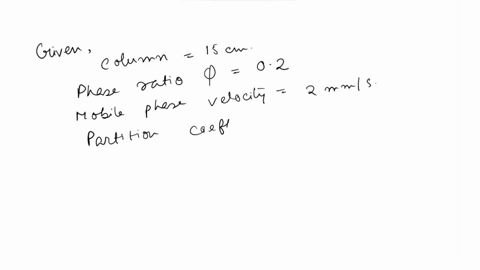 Given,
Column = 15 cm.
Phase ratio ϕ = 0.2
Mobile phase velocity = 2 mm/s.
Partition coeff